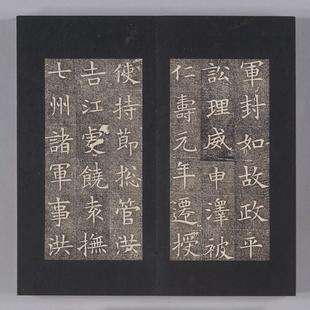 軍封如故政平
訟理威申澤被
仁壽元年遷授
使持節捴管洪
吉江虔饒袁撫
七州諸軍事洪